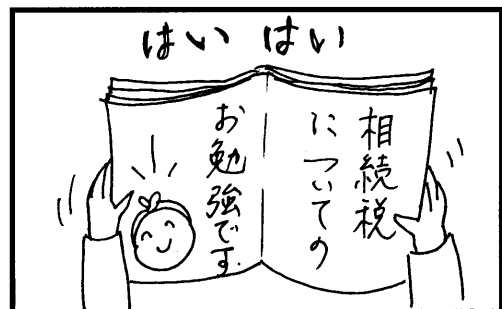 はい はい
相続税
についての
お勉強です.